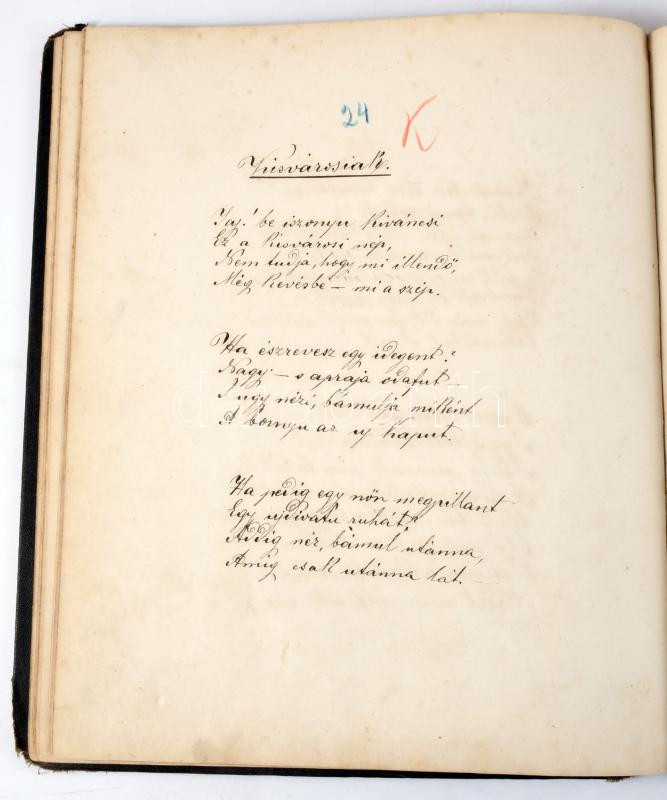 24 K
Kisvárosiak.
Jaj! be iszonyu kiváncsi
Ez a kisvárosi nép,
Nem tudja, hogy mi illendő,
Még kevésbé – mi a szép.
Ha észrevesz egy idegent:
Nagy – s apraja odafut –
S ugy nézi, bámulja miként
A bornyu az uj kaput.
Ha pedig egy nőn megpillant
Egy ujdivatu ruhát:
Addig néz, bámul utánna,
Amig csak utánna lát. –